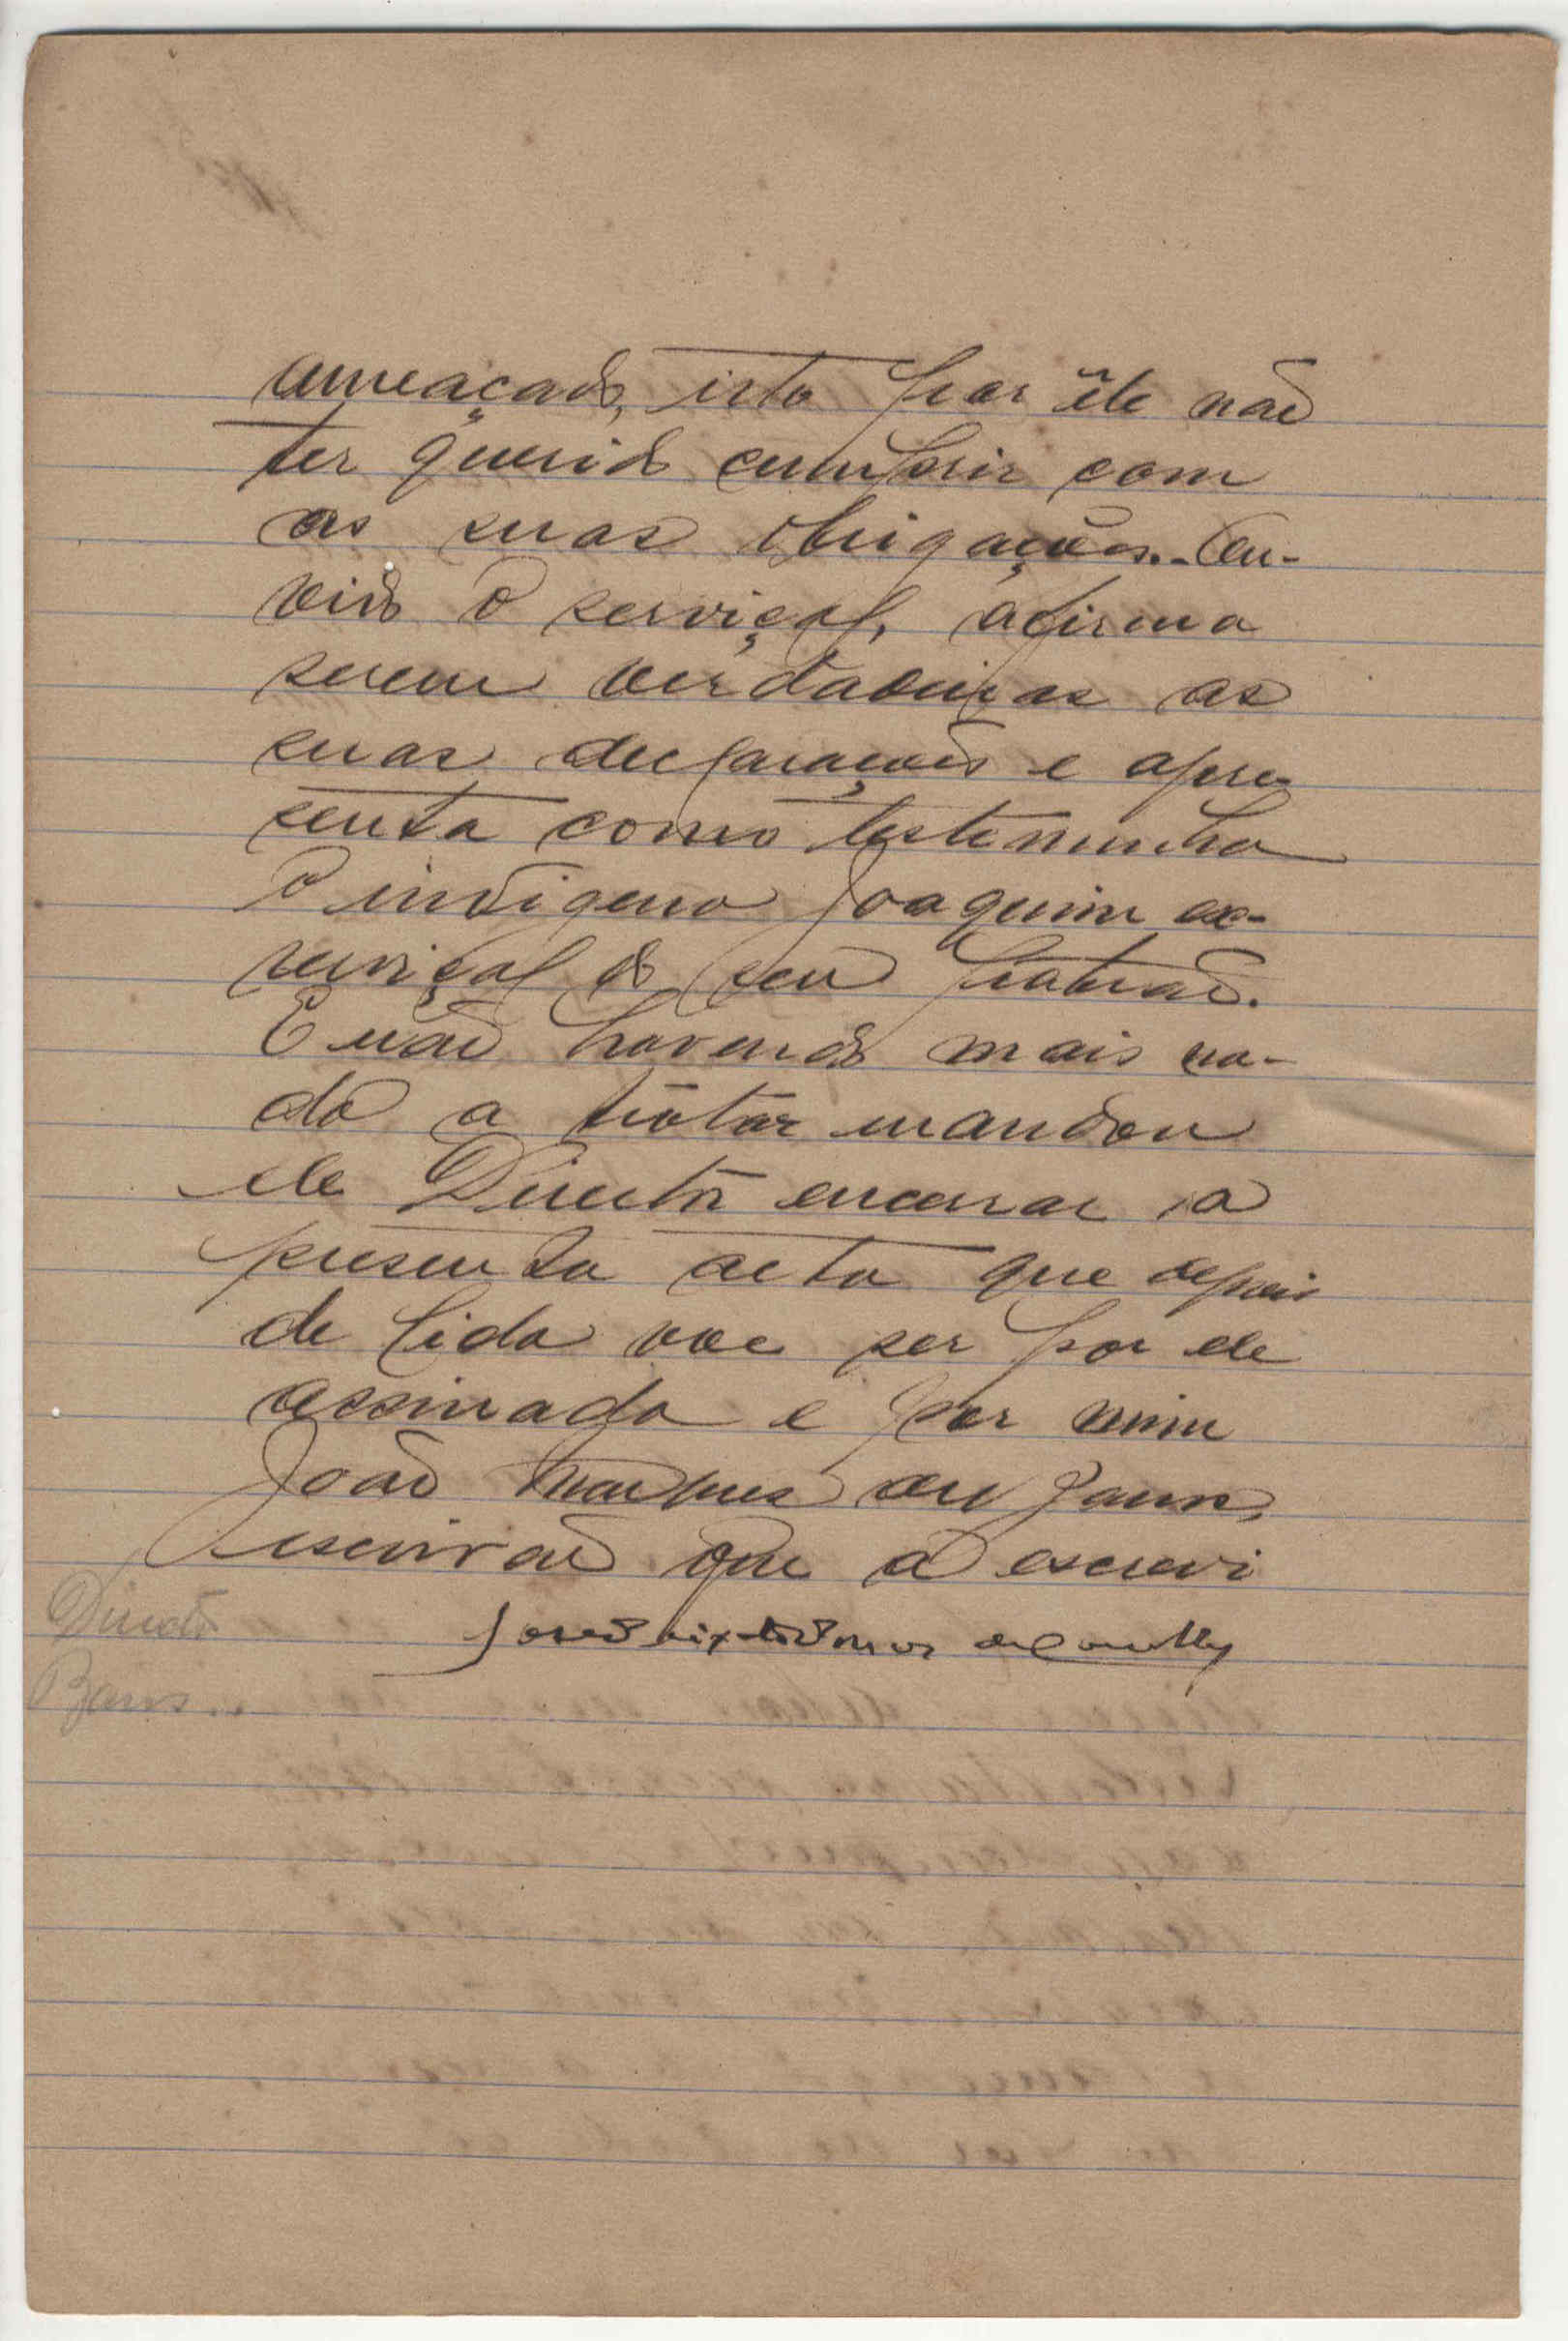 ameaçado, isto por êle não
ter querido cumprir com
as suas obrigações.- Ou-
vido o serviçal, afirma
serem verdadeiras as
suas declarações e apre-
senta como testemunha
o indigena Joaquim ex-
serviçal do seu patrão.
E não havendo mais na-
da a tratar mandou
ele Director encerrar a
presente acta que depois
de lida vae ser por ele
assinada e por mim
João Marques
escrivão que a escrevi
José
Director